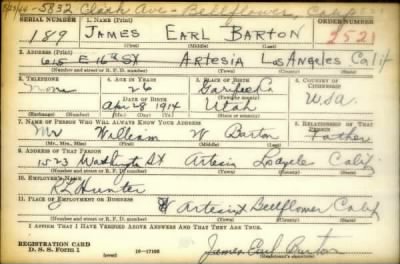 5832 Clark Ave - Bellflower, Calif
SERIAL NUMBER 1. NAME (Print) ORDER NUMBER
189 JAMES EARL BARTON 2521
(First) (Middle) (Last)
2. ADDRESS (Print)
615 E 167 St ARTESIA Los Angeles Calif
(Number and street or R. F. D. number) (Town) (County) (State)
3. TELEPHONE 4. AGE IN YEARS 5. PLACE OF BIRTH 6. COUNTRY OF CITIZENSHIP
None 26 Garfield Co
DATE OF BIRTH (Town or county)
Apr 28 1914 Utah USA
(Exchange) (Number) (Mo.) (Day) (Yr.) (State or country)
7. NAME OF PERSON WHO WILL ALWAYS KNOW YOUR ADDRESS 8. RELATIONSHIP OF THAT PERSON
Mr William W Barton Father
(Mr., Mrs., Miss) (First) (Middle) (Last)
9. ADDRESS OF THAT PERSON
1523 Washington St Artesia Los Angeles Calif
(Number and street or R. F. D. number) (Town) (County) (State)
10. EMPLOYER'S NAME
RL Hunter
11. PLACE OF EMPLOYMENT OR BUSINESS
W Artesia St Bellflower Calif
(Number and street or R. F. D. number) (Town) (County) (State)
I AFFIRM THAT I HAVE VERIFIED ABOVE ANSWERS AND THAT THEY ARE TRUE.
REGISTRATION CARD
D. S. S. Form 1 16-17105 James Earl Barton
(Registrant's signature)